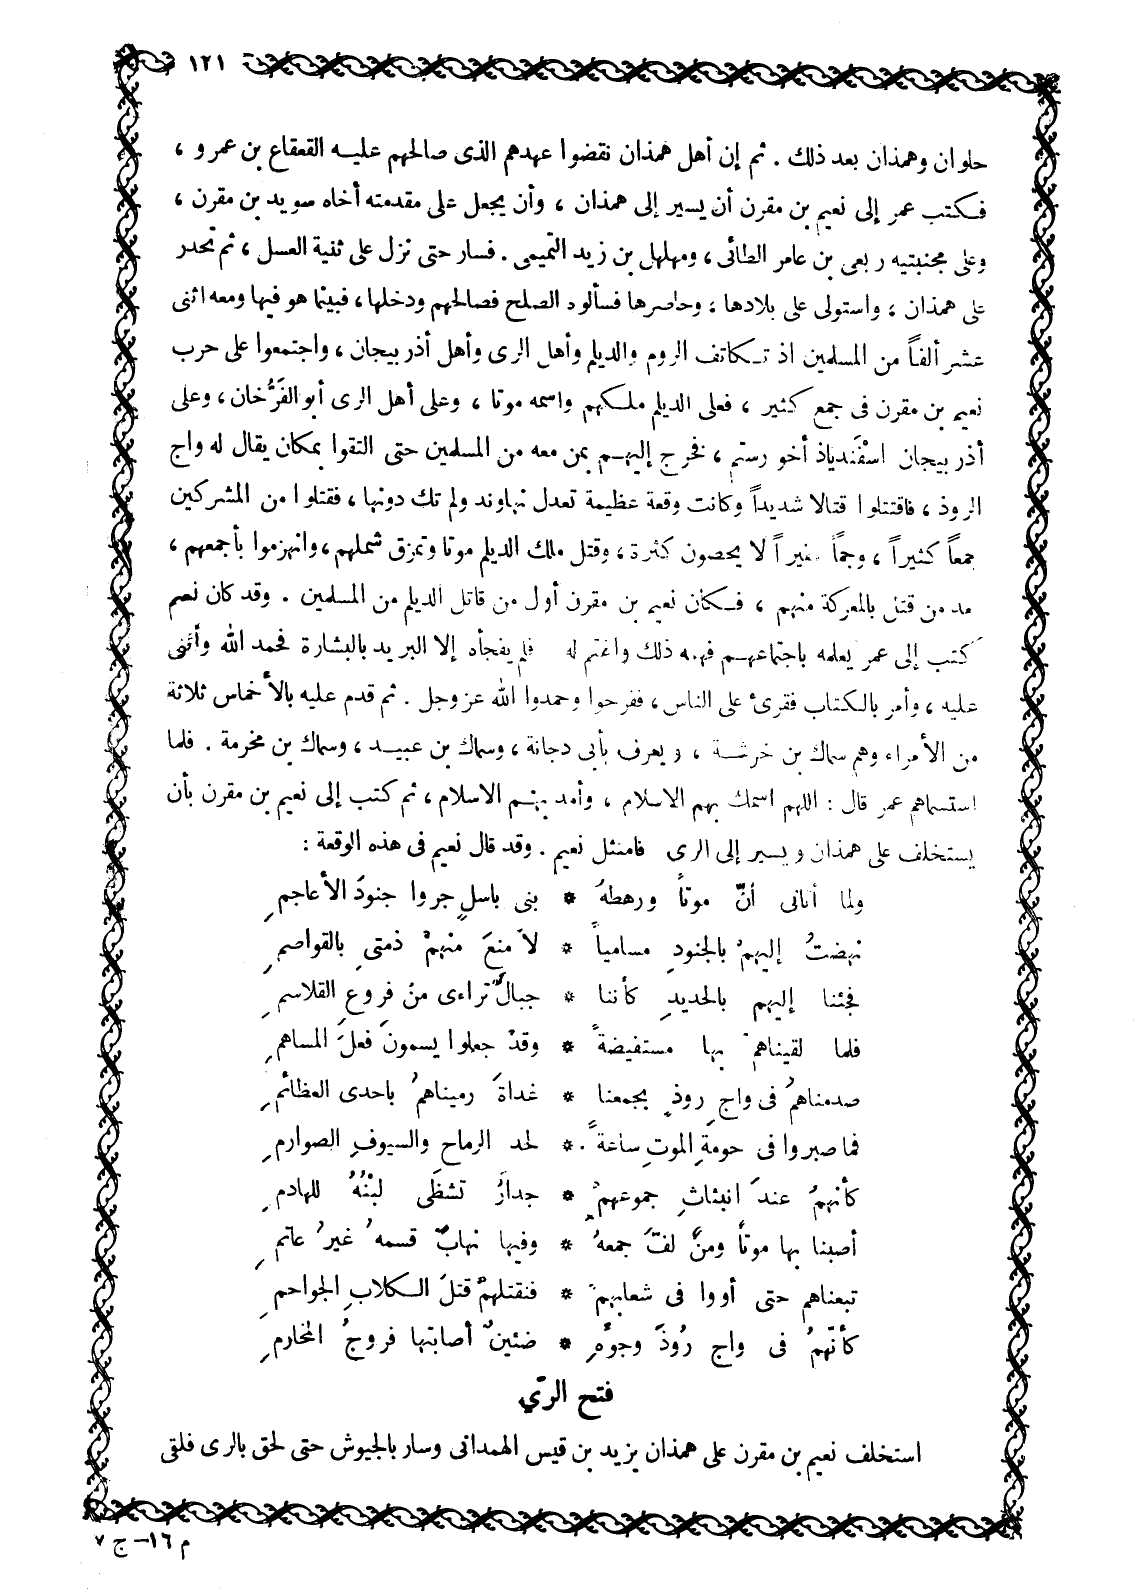 ١٢١
حلوان وهمذان بعد ذلك . ثم إن أهل همذان نقضوا عهدهم الذى صالحهم عليه القعقاع بن عمرو ،
فكتب عمر إلى نعيم بن مقرن أن يسير إلى همذان ، وأن يجعل على مقدمته أخاه سويد بن مقرن ،
وعلى مجنبتيه ربعى بن عامر الطائى ، ومهلهل بن زيد التميمى . فسار حتى نزل على ثنية العسل ، ثم تحدر
على همذان ، واستولى على بلادها ، وحاصرها فسألوه الصلح فصالحهم ودخلها ، فبينما هو فيها ومعه اثنى
عشر ألفاً من المسلمين اذ تكاتف الروم والديلم وأهل الرى وأهل أذربيجان ، واجتمعوا على حرب
نعيم بن مقرن فى جمع كثير ، فعلى الديلم ملكهم واسمه موتا ، وعلى أهل الرى أبو الفَرُّخان ، وعلى
أذربيجان اسفَندياذ أخو رستم ، فخرج إليهم بمن معه من المسلمين حتى التقوا بمكان يقال له واج
الروذ ، فاقتتلوا قتالا شديداً وكانت وقعة عظيمة تعدل نهاوند ولم تك دونها ، فقتلوا من المشركين
جمعاً كثيراً ، وجماً غفيراً لا يحصون كثرة ، وقتل ملك الديلم موتا وتمزق شملهم ، وانهزموا بأجمعهم ،
من قتل بالمعركة منهم ، فكان نعيم بن مقرن أول من قاتل الديلم من المسلمين . وقد كان نعيم
كتب إلى عمر يعلمه باجتماعهم فهمه ذلك واغتم له فلم يفجأه إلا البريد بالبشارة فحمد الله وأثنى
عليه ، وأمر بالكتاب فقرئ على الناس ، ففرحوا وحمدوا الله عز وجل . ثم قدم عليه بالأخماس ثلاثة
من الأمراء وهم سماك بن خرشة ، ويعرف بأبى دجانة ، وسماك بن عبيد ، وسماك بن مخرمة . فلما
استسماهم عمر قال : اللهم اسمك بهم الاسلام ، وأمد بهم الاسلام ، ثم كتب إلى نعيم بن مقرن بأن
يستخلف على همذان ويسير إلى الرى فامتثل نعيم . وقد قال نعيم فى هذه الوقعة :
ولما أتانى أنَّ موتاً ورهطهُ * بنى باسلٍ جروا جنودَ الأعاجمِ
نهضتُ إليهمْ بالجنودِ مسامياً * لأمنعَ منهمْ ذمتى بالقواصمِ
فجئنا إليهم بالحديدِ كأننا * جبالٌ تراءى منْ فروعِ القلاسمِ
فلما لقيناهمْ بها مستفيضةً * وقدْ جعلوا يسمونَ فعلَ المساهمِ
صدمناهمُ فى واجِ روذٍ بجمعنا * غداةَ رميناهمُ باحدى العظائمِ
فما صبروا فى حومةِ الموتِ ساعةً * لحد الرماح والسيوفِ الصوارمِ
كأنهمُ عندَ انبثاثِ جموعهمْ * جدارٌ تشظَى لبْنُهُ للهادمِ
أصبنا بها موتاً ومنْ لفَّ جمعهُ * وفيها نهابٌ قسمهُ غيرُ عاتمِ
تبعناهم حتى أووا فى شعابهمْ * فنقتلهمْ قتلَ الكلابِ الجواحمِ
كأنّهمُ فى واج رُوذَ وجوِّهِ * ضئينٌ أصابتها فروجُ المخارمِ
فتح الريّ
استخلف نعيم بن مقرن على همذان يزيد بن قيس الهمدانى وسار بالجيوش حتى لحق بالرى فلقى
م ١٦ - ج ٧